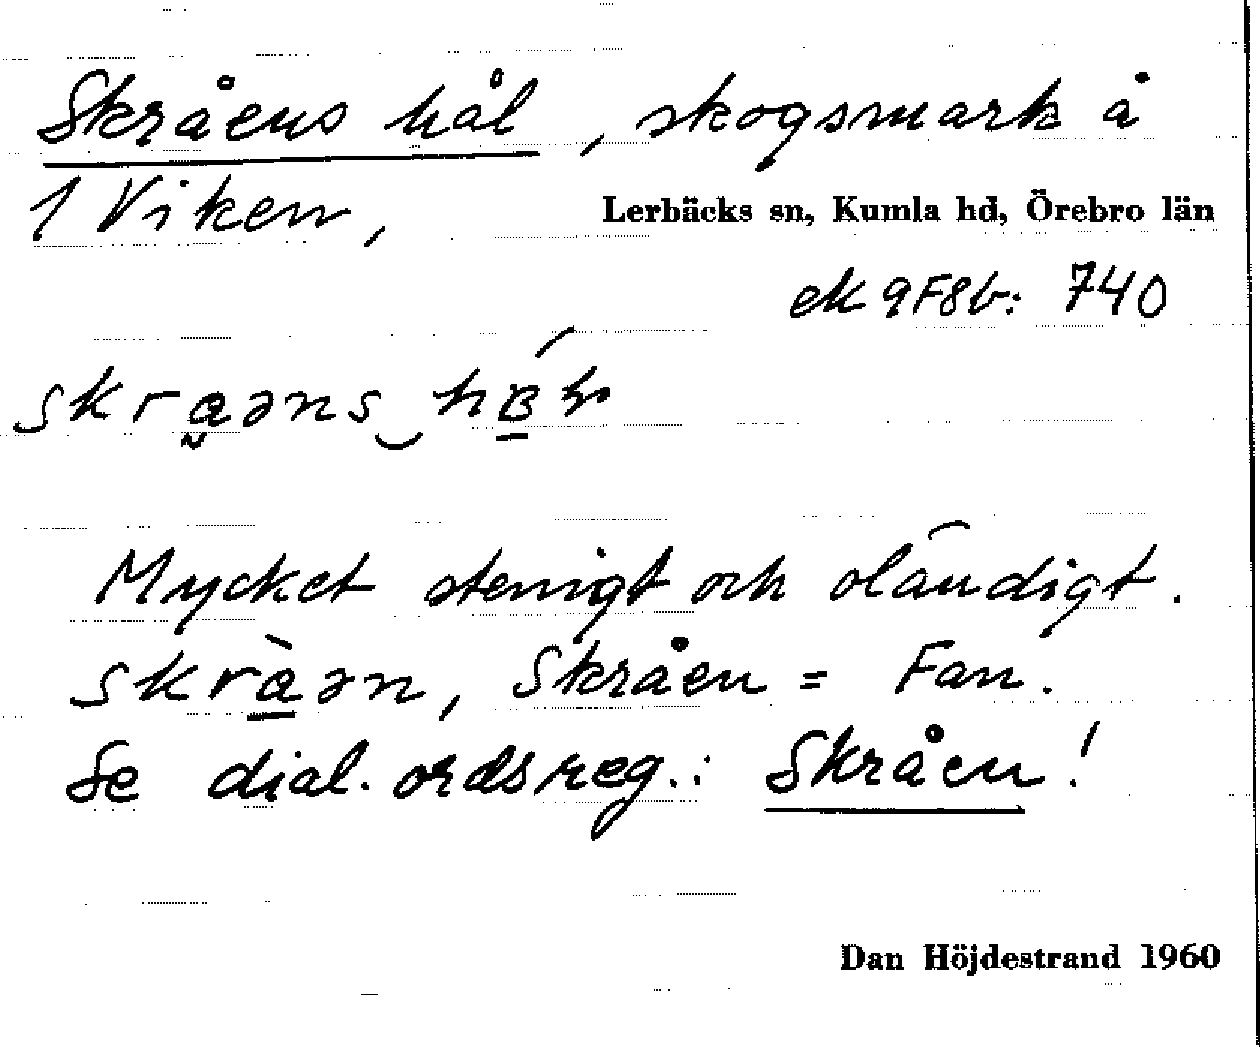 Skråens hål, skogsmark å
1 Viken,
Lerbäcks sn, Kumla hd, Örebro län
ek 9F8b: 740
Mycket stenigt och oländigt.
skràən, Skråen = Fan.
Se dial. ordsreg.: Skråen!
Dan Höjdestrand 1960